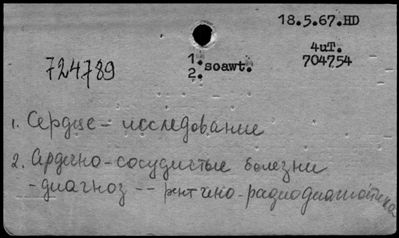 18.5.67.HD
4uT.
704754
724789
1.
2. soawt.
1. Сердце - исследование
2. Ардично-сосудистые болезни
- диагноз -- рнтчино-радиодиагностика